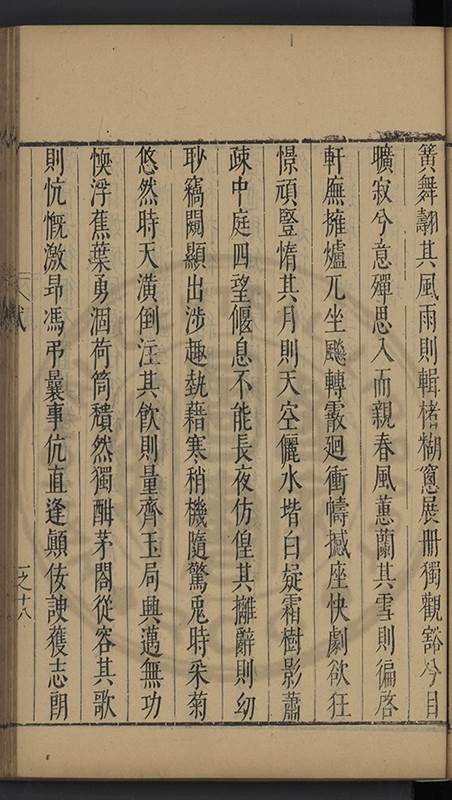 簧舞翿其風雨則輯楮糊窻展冊獨觀豁兮目
曠寂兮意殫思入而親春風蕙蘭其雪則徧啓
軒廡擁爐兀坐飈轉霰廻衝幬撼座快劇欲狂
憬頑豎惰其月則天空儷水堦白疑霜樹影蕭
疎中庭四望偃息不能長夜仿偟其摛辭則幼
眇窮闋顯出涉趣執藉寒稍機隨驚兎時采菊
悠然時天潢倒注其飲則量齊玉局興邁無功
愞浮蕉葉勇涸荷筒穨然獨酣茅閣從容其歌
則忼慨激昂馮弔曩事伉直逢顛佞諛獲志朗
賦
一之十八